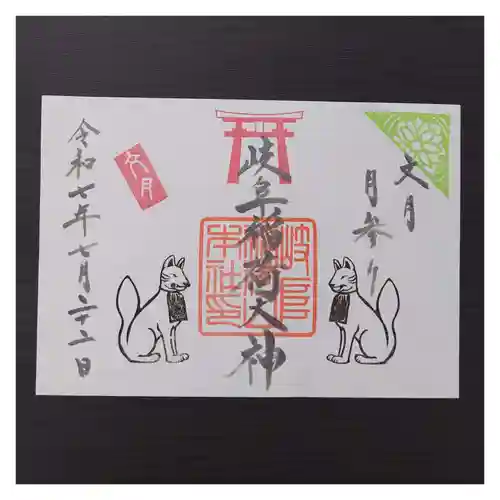 文月
月参り
岐阜稲荷大神
岐阜
稲荷
本社印
文月
令和七年七月二十二日